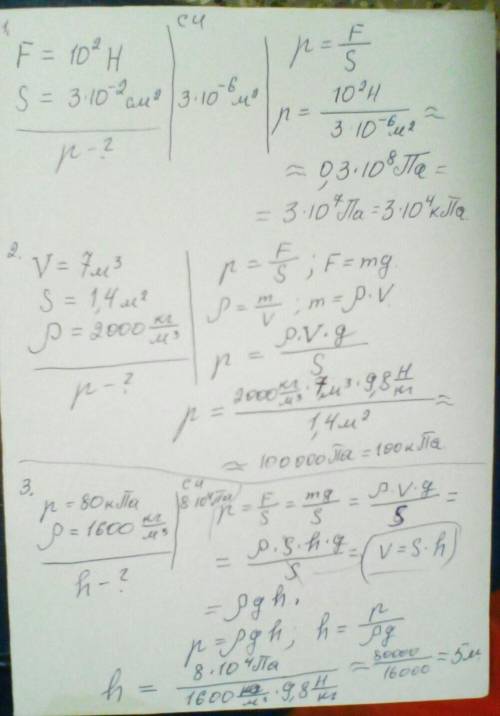 1.
СИ
F = 10² Н
S = 3·10⁻² см² | 3·10⁻⁶ м²
p - ?
p = F/S
p = 10² Н / 3·10⁻⁶ м² ≈
≈ 0,3·10⁸ Па =
= 3·10⁷ Па = 3·10⁴ кПа
2.
V = 7 м³
S = 1,4 м²
ρ = 2000 кг/м³
p - ?
p = F/S ; F = mg.
ρ = m/V ; m = ρ·V.
p = ρ·V·g / S
p = 2000 кг/м³ · 7 м³ · 9,8 Н/кг / 1,4 м² ≈
≈ 100000 Па = 100 кПа
3.
СИ
p = 80 кПа | 8·10⁴ Па
ρ = 1600 кг/м³
h - ?
p = F/S = mg/S = ρ·V·g / S =
= ρ·S·h·g / S = (V = S·h)
= ρgh.
p = ρgh; h = p/ρg
h = 8·10⁴ Па / 1600 кг/м³ · 9,8 Н/кг ≈ 80000/16000 = 5 м